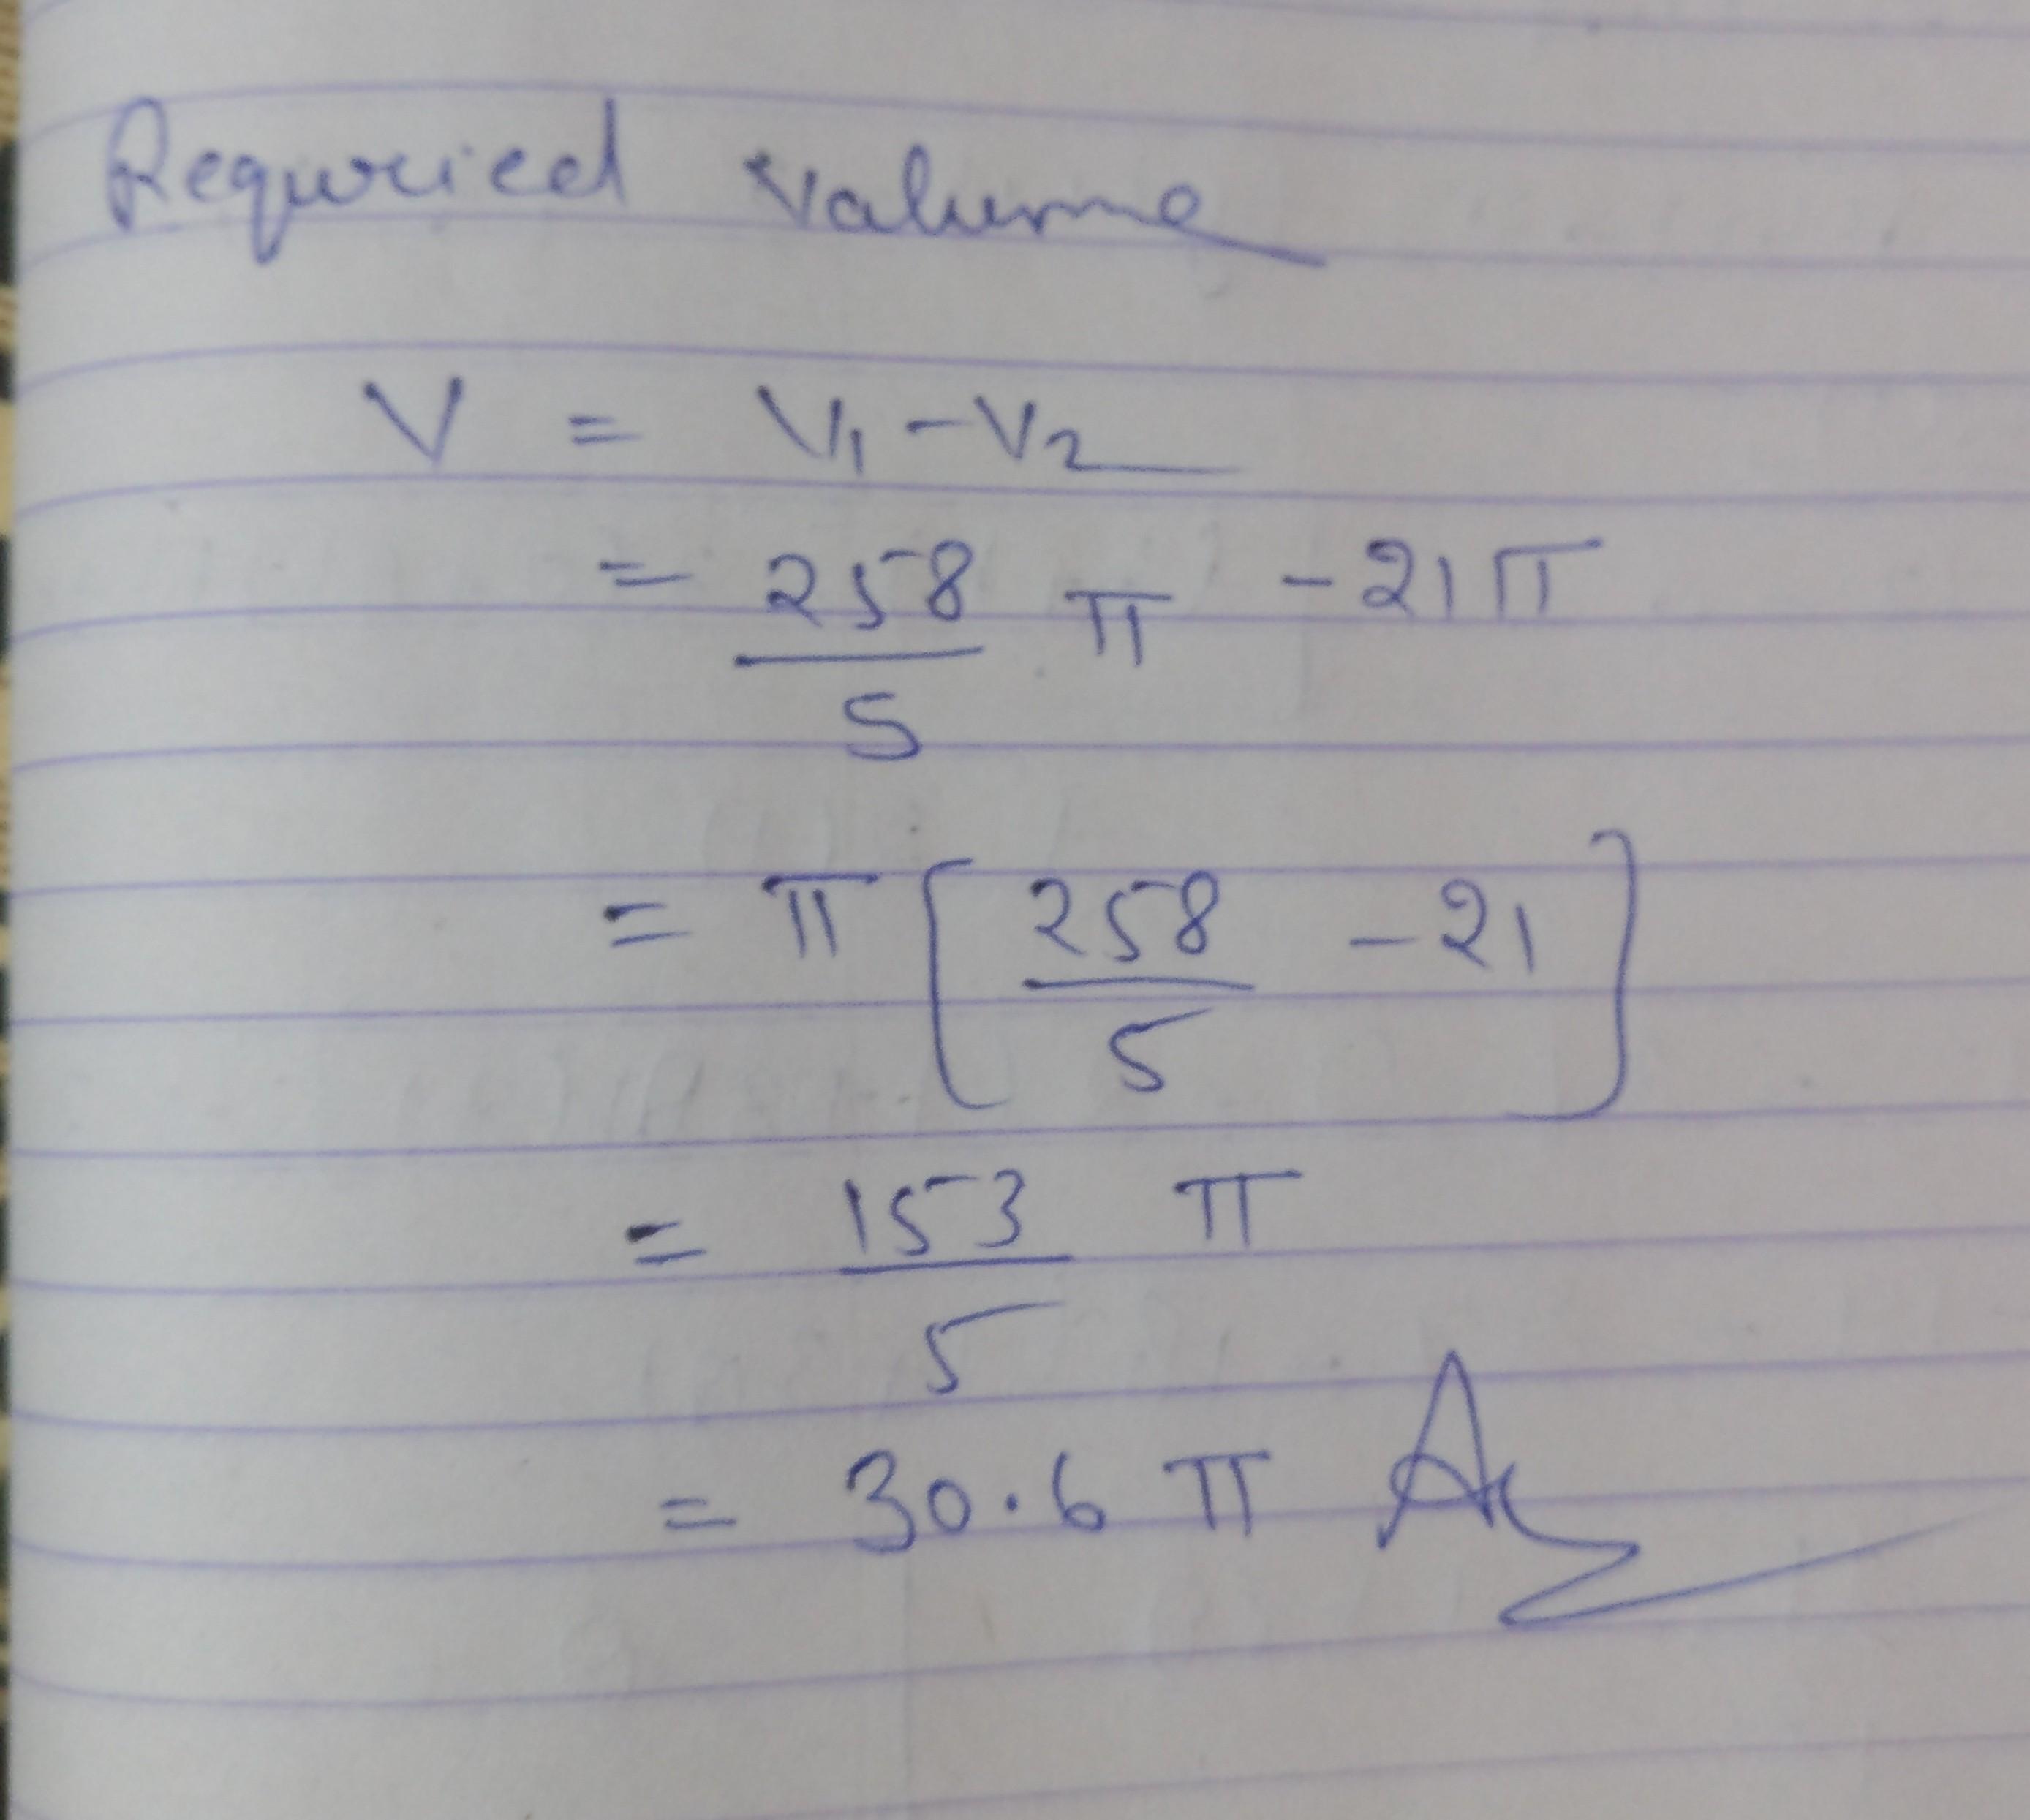 Requried Valume
V = V₁ - V₂
= 258/5 π - 21π
= π [258/5 - 21]
= 153/5 π
= 30.6 π